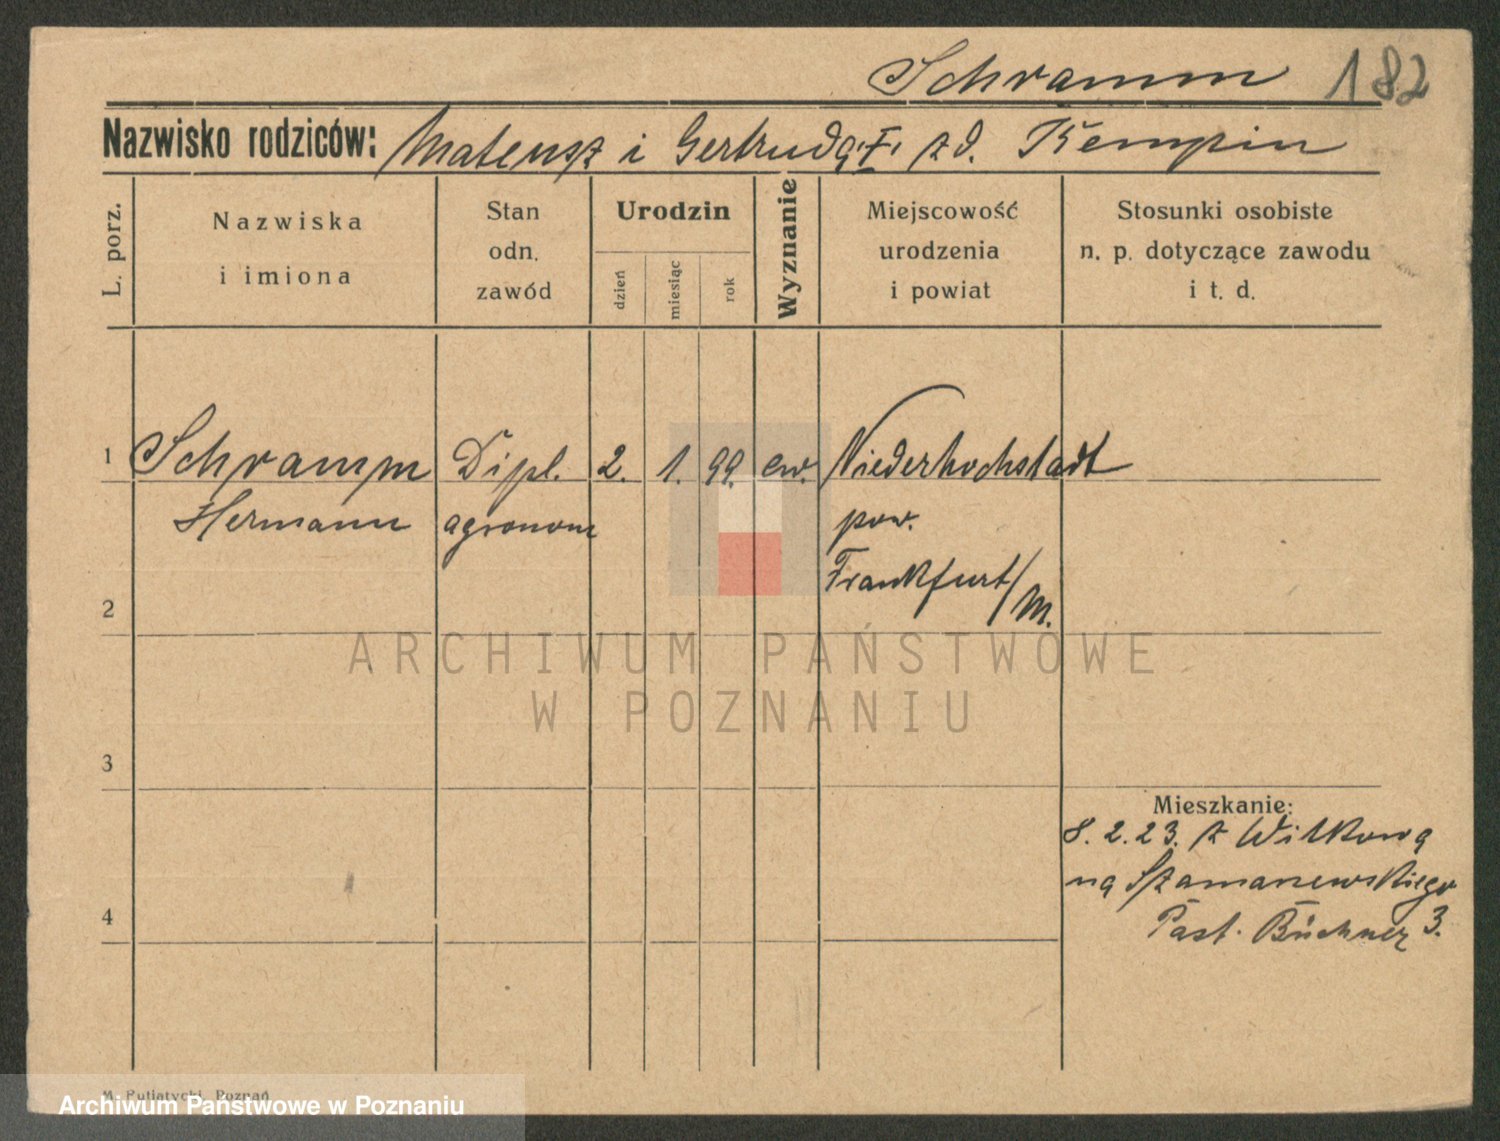 Schramm 182
Nazwisko rodziców: Mateusz i Gertruda zd. Kempin
L. porz.
Nazwiska
i imiona
Stan
odn.
zawód
Urodzin
dzień
miesiąc
rok
Wyznanie
Miejscowość
urodzenia
i powiat
Stosunki osobiste
n. p. dotyczące zawodu
i t. d.
1 Schramm Dipl. 2. 1. 99. ew. Niederhochstadt
Hermann agronom pow.
Frankfurt/M.
2
ARCHIWUM PAŃSTWOWE
W POZNANIU
3
Mieszkanie:
8. 2. 23. z Witkowa
na
4
Past. Büchner 3.
M. Putiatycki, Poznań
Archiwum Państwowe w Poznaniu